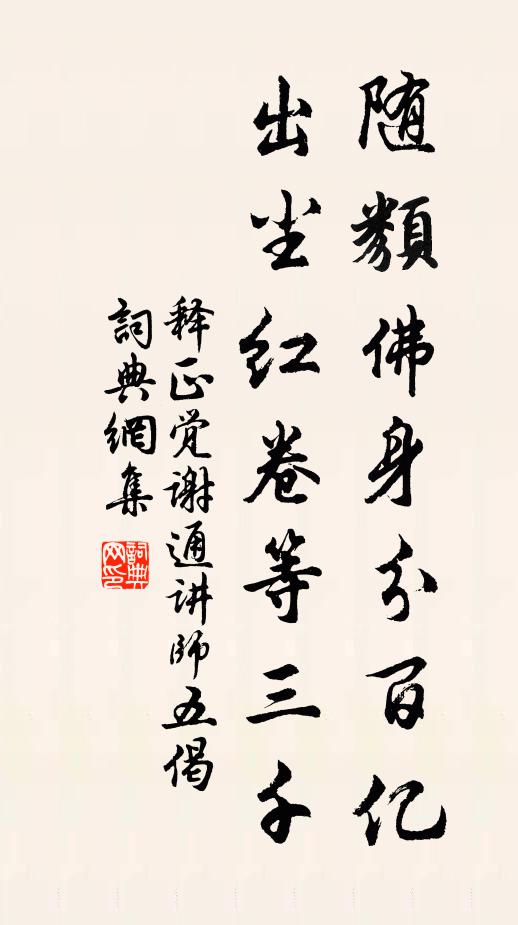 随類佛身分百亿
出尘红卷等三千
释正觉谢通讲师五偈
詞典網集
詞典网印